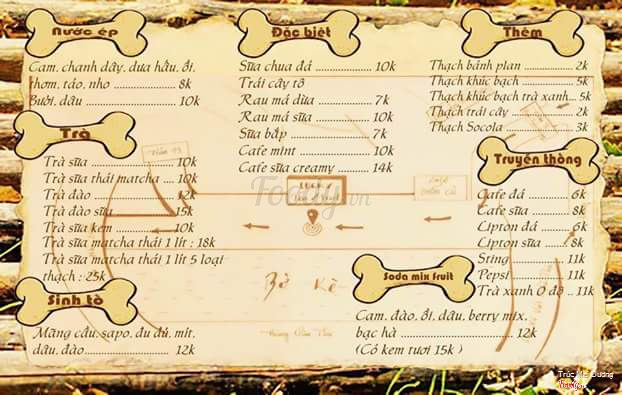 Nước ép
Cam, chanh dây, dưa hấu, ổi,
thơm, táo, nho ........................ 8k
Bưởi, dâu ........................... 10k
Trà
Trà sữa ......................... 10k
Trà sữa thái matcha .... 10k
Trà đào ........................ 12k
Trà đào sữa ................. 15k
Trà sữa kem ................ 10k
Trà sữa matcha thái 1 lít : 18k
Trà sữa matcha thái 1 lít 5 loại
thạch : 25k
Sinh tố
Mãng cầu, sapo, đu đủ, mít,
dâu, đào................................ 12k
Đặc biệt
Sữa chua đá ................... 10k
Trái cây tô
Rau má dừa .................... 7k
Rau má sữa .................... 10k
Sữa bắp .......................... 7k
Cafe mint ....................... 10k
Cafe sữa creamy ............ 14k
Thêm
Thạch bánh plan .............. 2k
Thạch khúc bạch .............. 5k
Thạch khúc bạch trà xanh... 5k
Thạch trái cây .................. 2k
Thạch Socola ................... 3k
Truyền thống
Cafe đá ................ 6k
Cafe sữa .............. 8k
Lipton đá ............. 6k
Lipton sữa ........... 8k
Sting .................... 11k
Pepsi .................... 11k
Trà xanh 0 độ .. 11k
Soda mix fruit
Cam, đào, ổi, dâu, berry mix,
bạc hà ................................ 12k
(Có kem tươi 15k )
Foody.vn
Bờ Kè